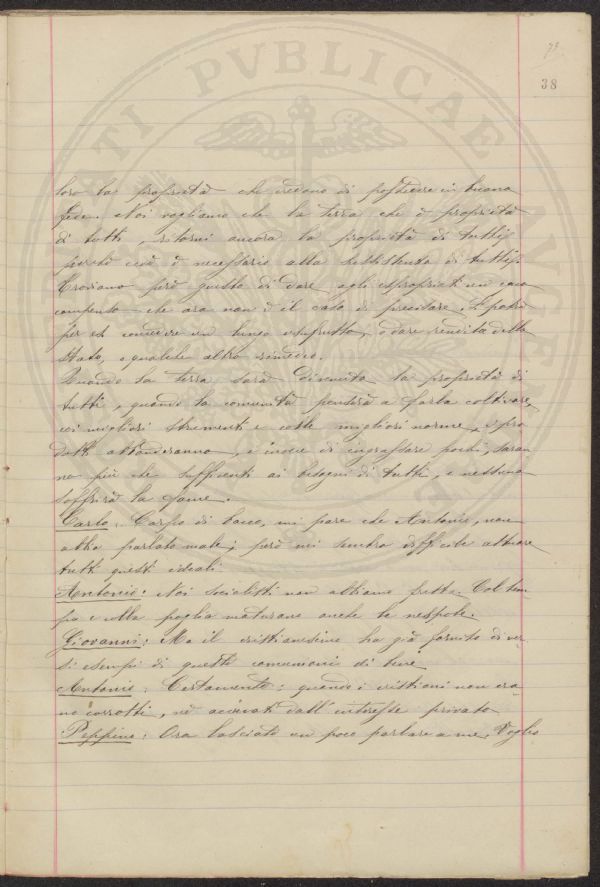 73
38
loro la proprietà che credono di possedere in buona
fede. Noi vogliamo che la terra che è proprietà
di tutti, ritorni ancora la proprietà di tutti,
perchè ciò è necessario alla sussistenza di tutti.
Troviamo però giusto di dare agli espropriati un
compenso che ora non è il caso di precisare. Si potrà
per es. concedere un lungo usufrutto, o dare rendita dello
Stato, o qualche altro rimedio.
Quando la terra sarà divenuta la proprietà di
tutti, quando la comunità penserà a farla coltivare,
coi migliori strumenti e colle migliori norme, i pro
dotti abbonderanno, e invece di ingrassare pochi, saran
no più che sufficienti ai bisogni di tutti, e nessuno
soffrirà la fame.
Carlo: Corpo di bacco, mi pare che Antonio, non
abbia parlato male; però mi sembra difficile attuare
tutti questi ideali.
Antonio: Noi socialisti non abbiamo fretta. Col tem
po e colla paglia maturano anche le nespole.
Giovanni: Ma il cristianesimo ha già fornito diver
si esempi di queste comunioni di beni.
Antonio: Certamente: quando i cristiani non era
no corrotti, nè accecati dall'interesse privato.
Peppino: Ora lasciate un poco parlare a me. Voglio